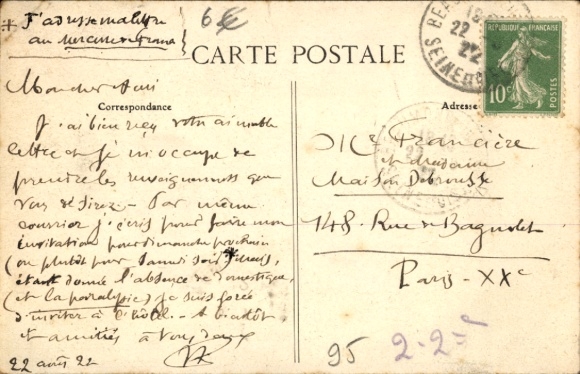 * J'adresse ma lettre
au Mercure de France
6€
CARTE POSTALE
Correspondance
Adresse
RÉPUBLIQUE FRANÇAISE
10c
POSTES
22
SEINE
Mon cher Ami
J'ai bien reçu votre aimable
lettre et je m'occupe de
prendre les renseignements que
vous désirez - Par même
courrier j'écris pour faire mon
invitation pour dimanche prochain
(ou plutôt pour samedi soir *
étant donné l'absence de domestique,
(et la paralysie) je suis forcé
d'inviter à l'hôtel. - A bientôt
et amitiés à vous deux
22 août 22
Mr Francière
et Madame
Maison Debrousse
148. Rue de Bagnolet
Paris - XXe
95
2-2e